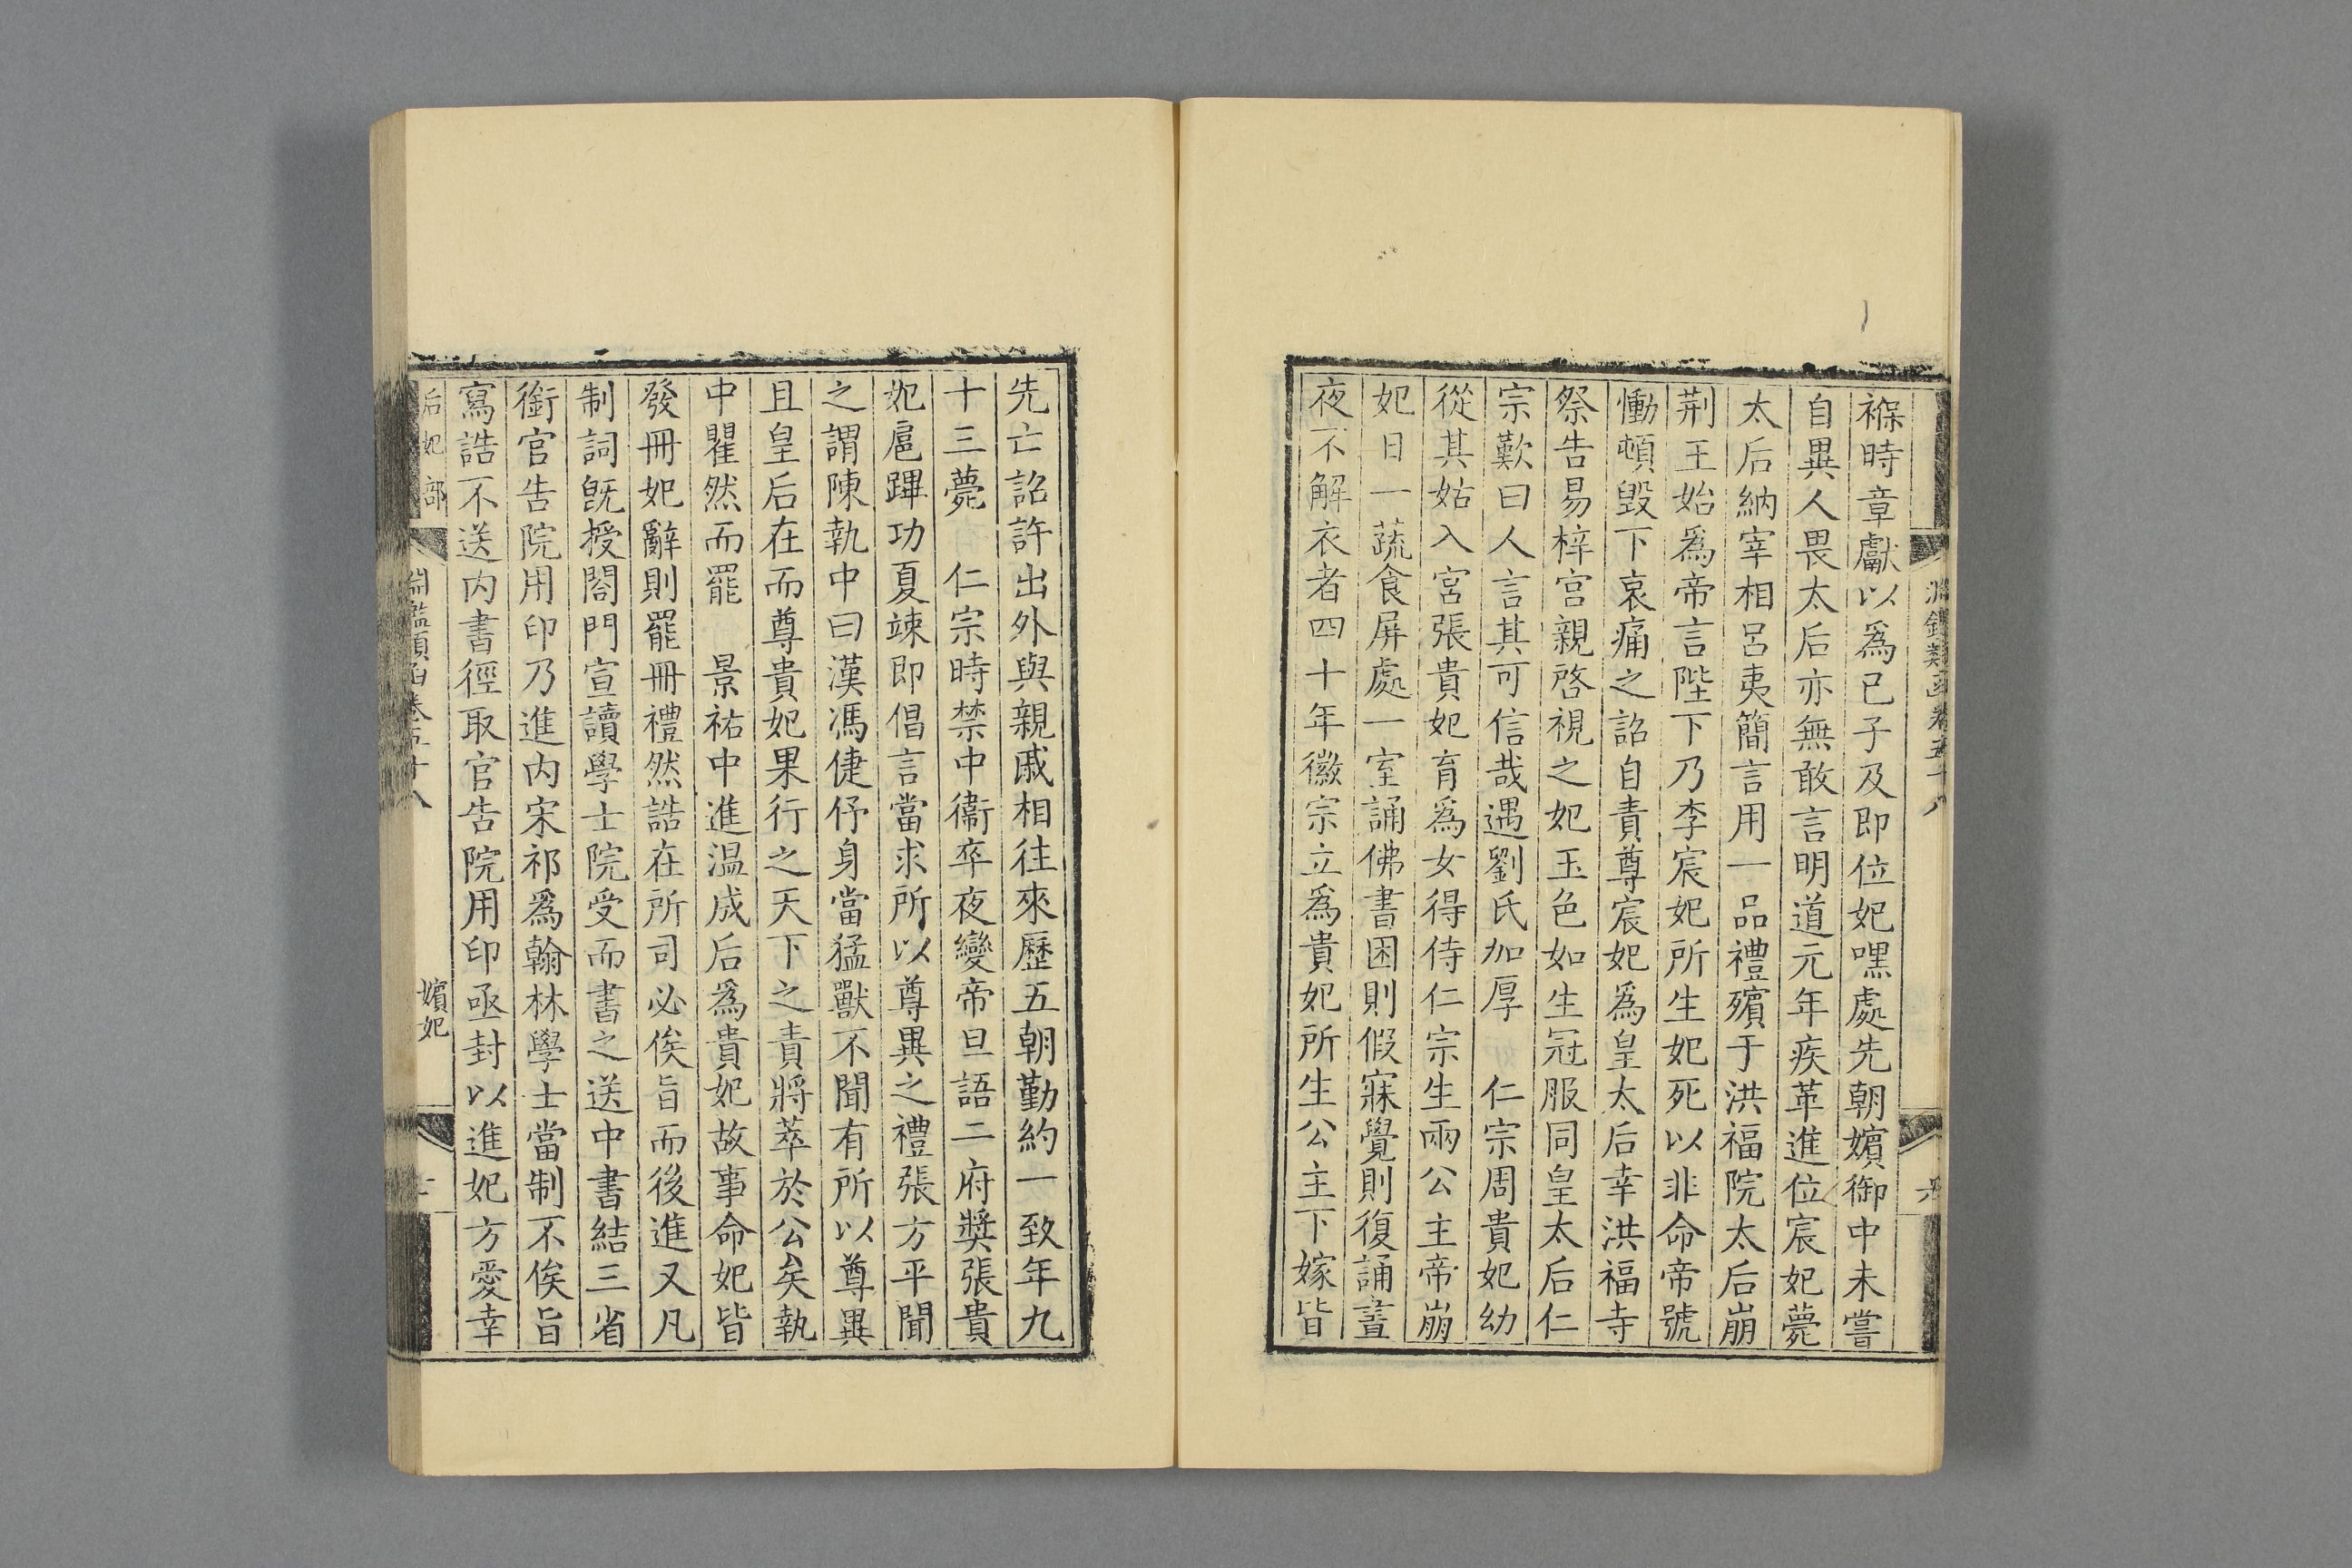 褓時章獻以爲已子及即位妃嘿處先朝嬪御中未嘗
自異人畏太后亦無敢言明道元年疾革進位宸妃薨
太后納宰相呂夷簡言用一品禮殯于洪福院太后崩
荆王始爲帝言陛下乃李宸妃所生妃死以非命帝號
慟頓毁下哀痛之詔自責尊宸妃爲皇太后幸洪福寺
祭告易梓宫親啓視之妃玉色如生冠服同皇太后仁
宗歎曰人言其可信哉遇劉氏加厚　仁宗周貴妃幼
從其姑入宮張貴妃育爲女得侍仁宗生兩公主帝崩
妃日一蔬食屏處一室誦佛書困則假寐覺則復誦晝
夜不解衣者四十年徽宗立爲貴妃所生公主下嫁皆
先亡詔許出外與親戚相往來歷五朝勤約一致年九
十三薨　仁宗時禁中衞卒夜變帝旦語二府奬張貴
妃扈蹕功夏竦即倡言當求所以尊異之禮張方平聞
之謂陳執中曰漢馮倢伃身當猛獸不聞有所以尊異
且皇后在而尊貴妃果行之天下之責將萃於公矣執
中瞿然而罷　景祐中進温成后爲貴妃故事命妃皆
發冊妃辭則罷冊禮然誥在所司必俟旨而後進又凡
制詞旣授閤門宣讀學士院受而書之送中書結三省
銜官告院用印乃進内宋祁爲翰林學士當制不俟旨
寫誥不送内書徑取官告院用印亟封以進妃方愛幸
后妃部
淵鑑類函卷五十八
嬪妃